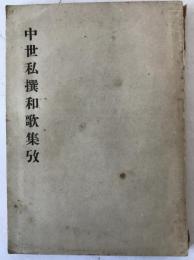 中世私撰和歌集攷